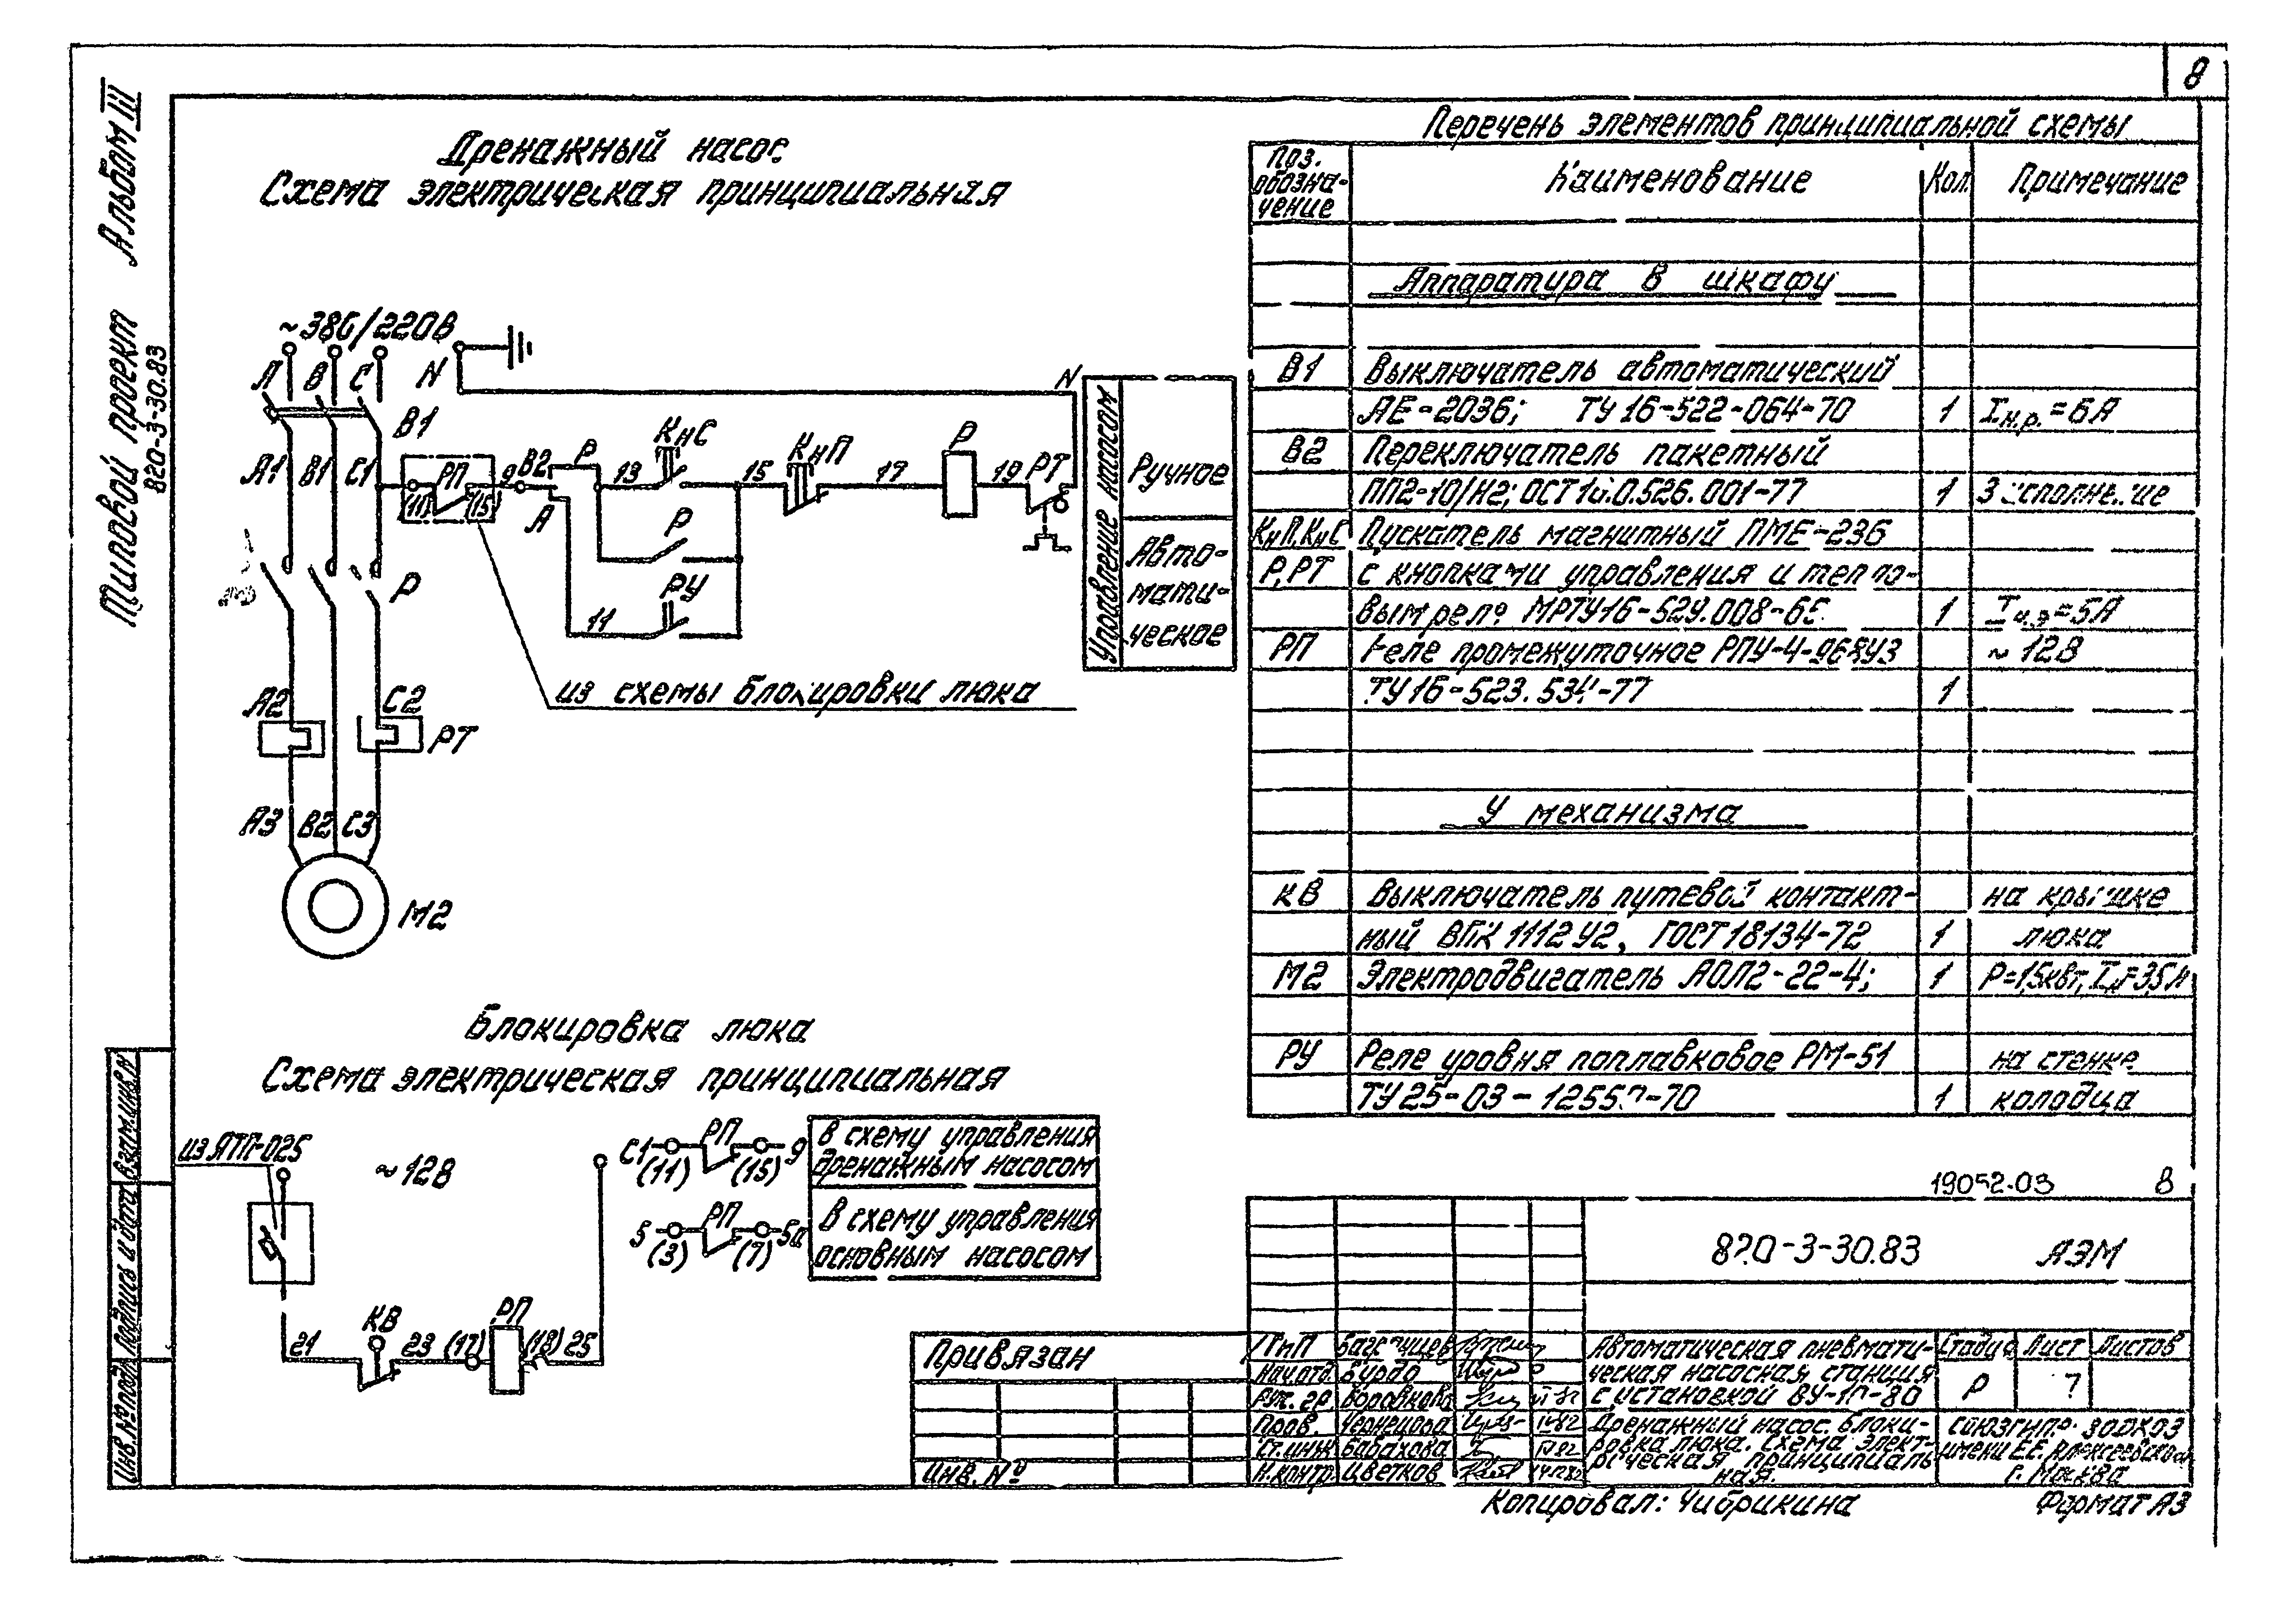 8
Альбом III
Типовой проект
820-3-30.83
Дренажный насос
Схема электрическая принципиальная
~380/220В
А В С N
N
В1
А1 В1 С1
РП
(11) (15)
9 В2 Р
А
13 КнС
15 КнП
17 Р
19 РТ
Р
Р
11 РУ
из схемы блокировки люка
А2 С2
РТ
А3 В2 С3
М2
Управление насосом
Ручное
Авто-
мати-
ческое
Блокировка люка
Схема электрическая принципиальная
из ЯТП-025
~12В
С1 РП 9
(11) (15)
в схему управления
дренажным насосом
5 РП 5а
(3) (7)
в схему управления
основным насосом
21 КВ 23 (17) РП (18) 25
Перечень элементов принципиальной схемы
Поз. обозна-чение Наименование Кол. Примечание
Аппаратура в шкафу
В1 Выключатель автоматический
АЕ-2036; ТУ 16-522-064-70 1 Iн.р.=6А
В2 Переключатель пакетный
ПП2-10/Н2; ОСТ 16.0.526.001-77 1 3 исполнение
КнП,КнС Пускатель магнитный ПМЕ-236
Р,РТ с кнопками управления и тепло-
вым реле МРТУ16-529.008-65 1 Iн.э=5А
РП Реле промежуточное РПУ-4-968У3 ~12В
ТУ16-523.534-77 1
У механизма
КВ Выключатель путевой контакт- на крышке
ный ВПК 1112У2, ГОСТ 18134-72 1 люка
М2 Электродвигатель АОЛ2-22-4; 1 Р=1,5квт, Iн=3,5А
РУ Реле уровня поплавковое РМ-51 на стенке
ТУ 25-03- -70 1 колодца
19052-03 8
820-3-30.83 АЭМ
Привязан
Инв. №
ГИП
Нач.отд. Бурдо
Рук. гр. Боровкова
Пров. Чернецова
Ст.инж. Бабахова
Н.контр. Цветков
Автоматическая пневмати-
ческая насосная станция
с установкой ВУ-10-80
Стадия Лист Листов
Р 7
Дренажный насос. Блоки-
ровка люка. Схема элект-
рическая принципиаль-
ная.
Союзгипроводхоз
имени Е.Е. Алексеевского
г. Москва
Копировал: Чибрикина
Формат А3
Взам.инв.N
Подпись и дата
Инв.№ подл.